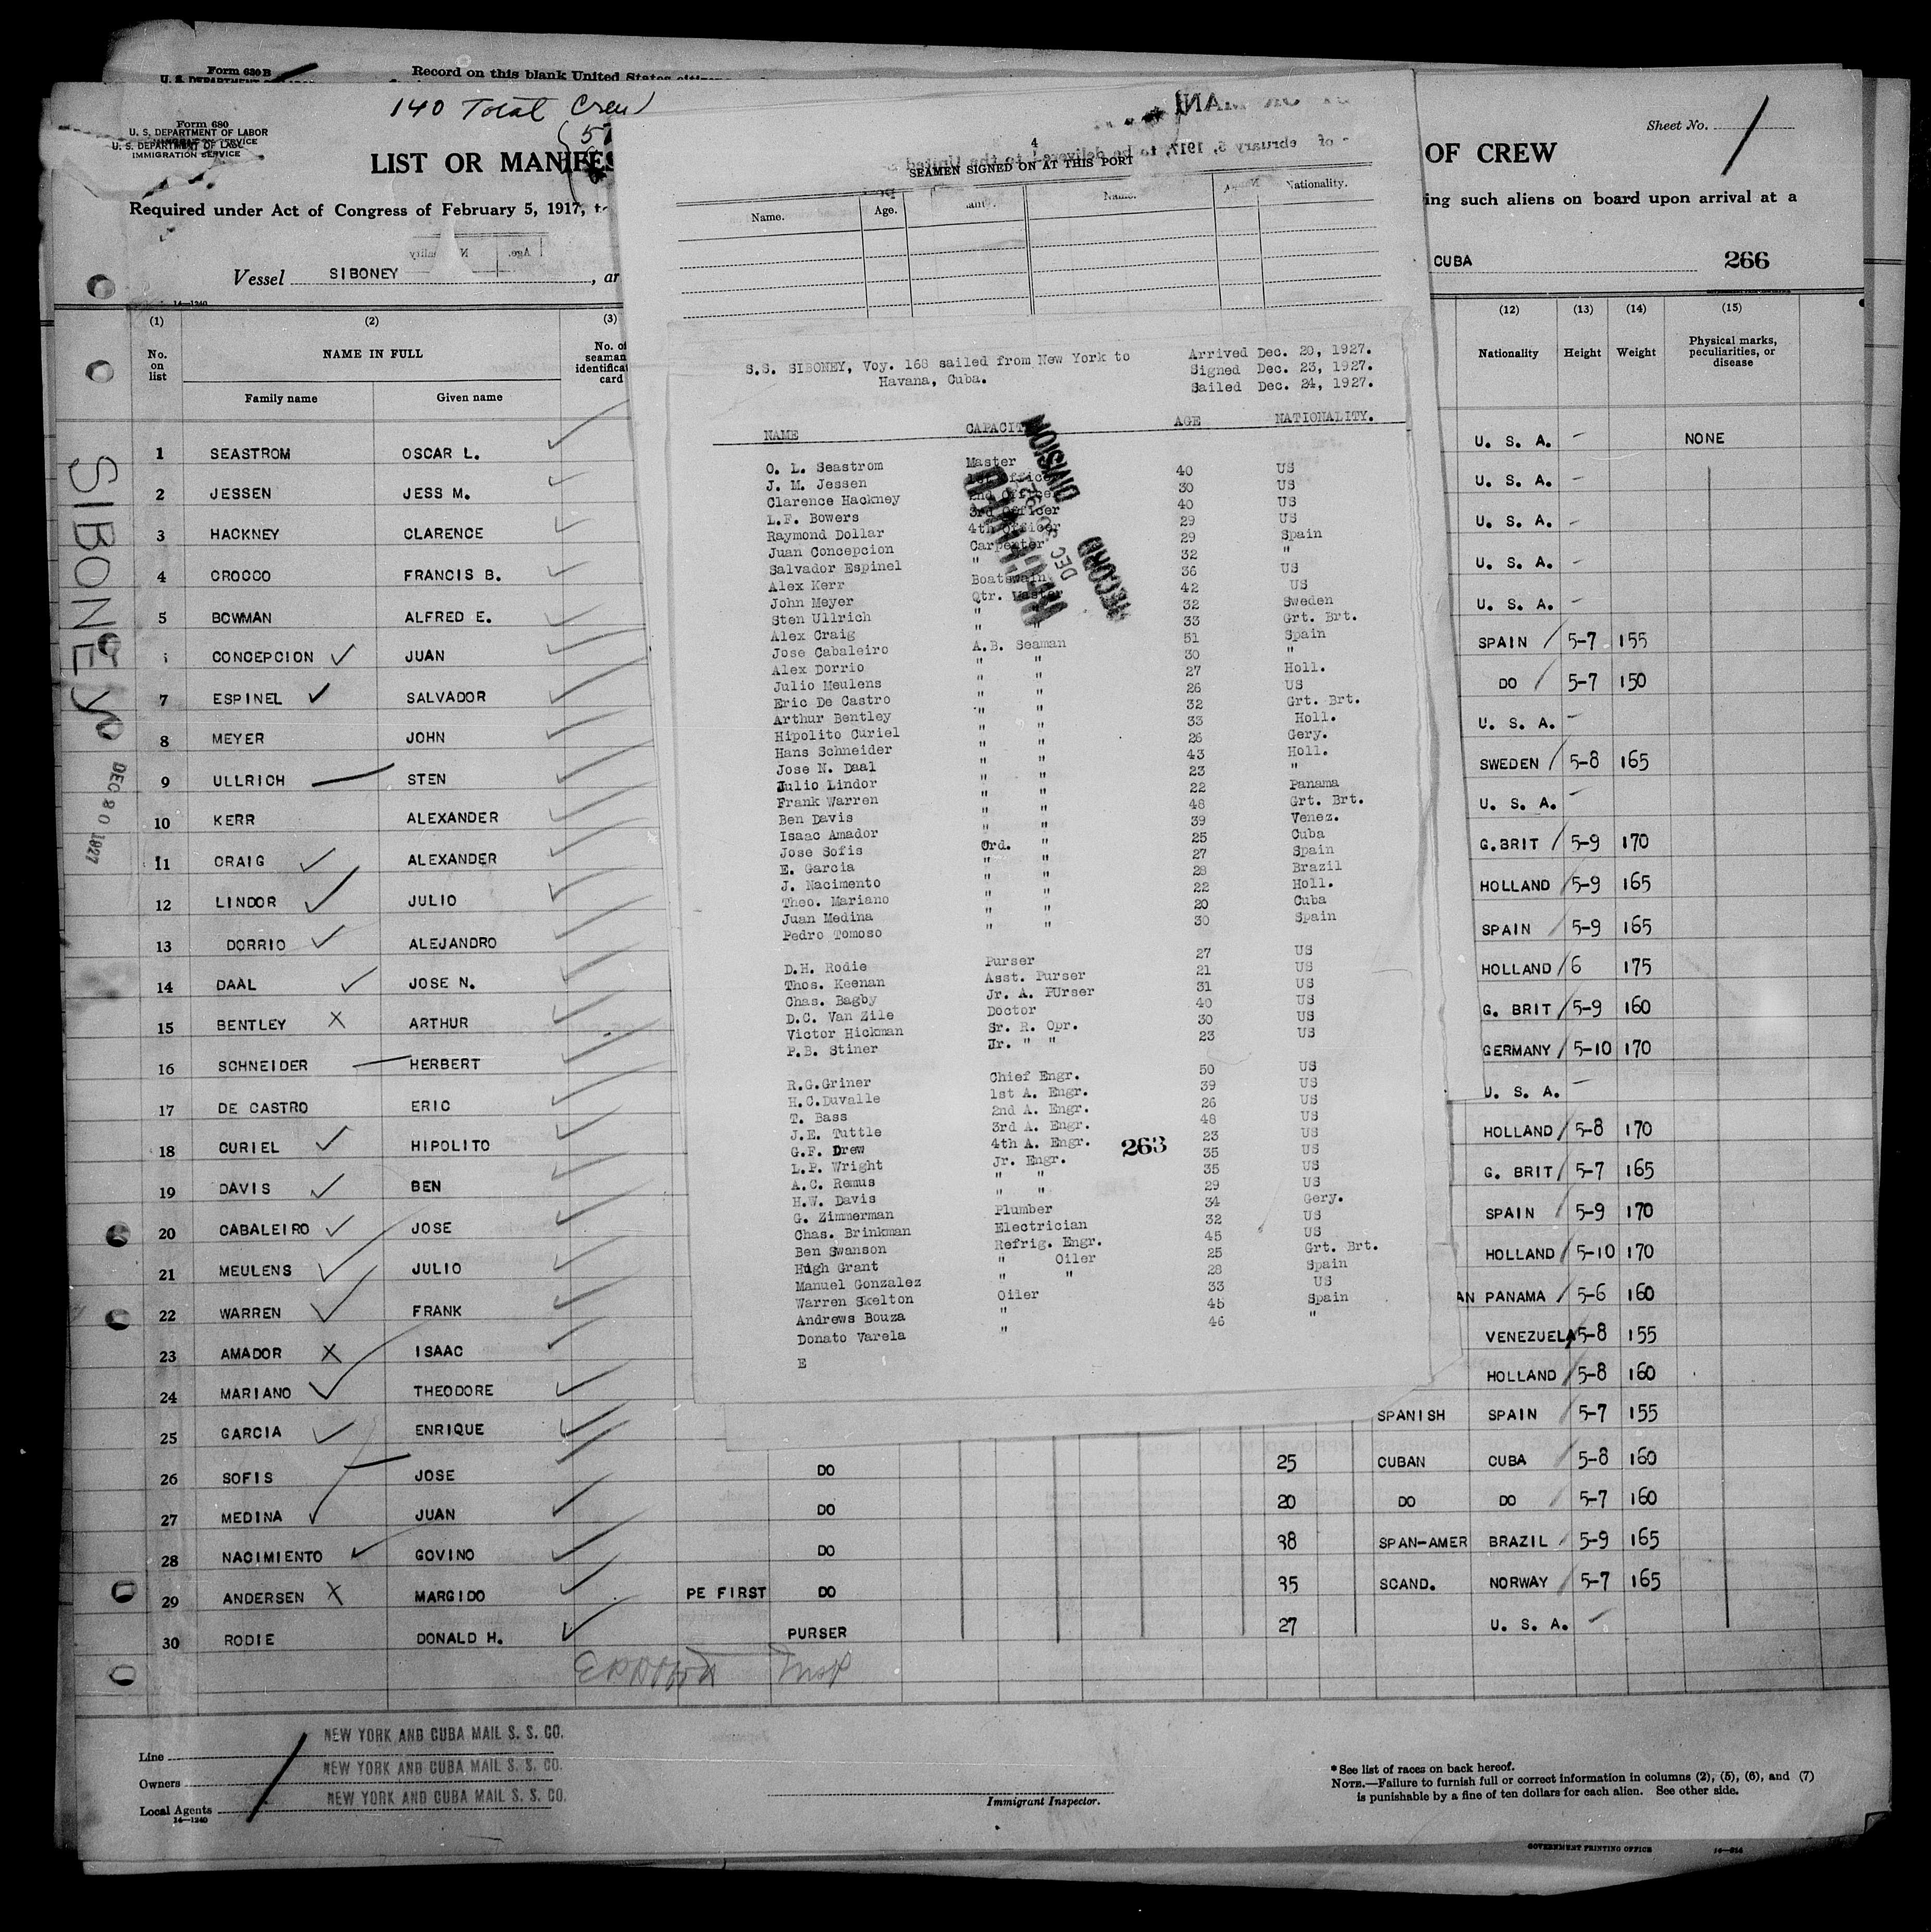 Form 630 B
Record on this blank United States
140 Total Crew
Form 680
U. S. DEPARTMENT OF LABOR
IMMIGRATION SERVICE
LIST OR MANIFES
OF CREW
Sheet No. 1
Required under Act of Congress of February 5, 1917, t
ing such aliens on board upon arrival at a
Vessel SIBONEY, ar
CUBA
266
14—1240
SIBONEY
DEC 20 1927
(1) (2) (3)
No. on list
NAME IN FULL
Family name Given name
No. of seaman identificat card
(12) (13) (14) (15)
Nationality Height Weight Physical marks, peculiarities, or disease
1 SEASTROM OSCAR L.
2 JESSEN JESS M.
3 HACKNEY CLARENCE
4 CROCCO FRANCIS B.
5 BOWMAN ALFRED E.
CONCEPCION JUAN
7 ESPINEL SALVADOR
8 MEYER JOHN
9 ULLRICH STEN
10 KERR ALEXANDER
11 CRAIG ALEXANDER
12 LINDOR JULIO
13 DORRIO ALEJANDRO
14 DAAL JOSE N.
15 BENTLEY ARTHUR
16 SCHNEIDER HERBERT
17 DE CASTRO ERIC
18 CURIEL HIPOLITO
19 DAVIS BEN
20 CABALEIRO JOSE
21 MEULENS JULIO
22 WARREN FRANK
23 AMADOR ISAAC
24 MARIANO THEODORE
25 GARCIA ENRIQUE
26 SOFIS JOSE
27 MEDINA JUAN
28 NACIMIENTO GOVINO
29 ANDERSEN MARGIDO
30 RODIE DONALD H.
4
SEAMEN SIGNED ON AT THIS PORT
Name. Age. Name. Nationality.
S.S. SIBONEY, Voy. 168 sailed from New York to
Havana, Cuba.
Arrived Dec. 20, 1927.
Signed Dec. 23, 1927.
Sailed Dec. 24, 1927.
NAME CAPACITY AGE NATIONALITY.
O. L. Seastrom Master 40 US
J. M. Jessen 1st Officer 30 US
Clarence Hackney 2nd Officer 40 US
L.F. Bowers 3rd Officer 29 US
Raymond Dollar 4th Officer 29 Spain
Juan Concepcion Carpenter 32 "
Salvador Espinel " 36 US
Alex Kerr Boatswain 42 US
John Meyer Qtr. Master 32 Sweden
Sten Ullrich " " 33 Grt. Brt.
Alex Craig " " 51 Spain
Jose Cabaleiro A.B. Seaman 30 "
Alex Dorrio " " 27 Holl.
Julio Meulens " " 26 US
Eric De Castro " " 32 Grt. Brt.
Arthur Bentley " " 33 Holl.
Hipolito Curiel " " 26 Gery.
Hans Schneider " " 43 Holl.
Jose N. Daal " " 23 "
Julio Lindor " " 22 Panama
Frank Warren " " 48 Grt. Brt.
Ben Davis " " 39 Venez.
Isaac Amador " " 25 Cuba
Jose Sofis Ord. " 27 Spain
E. Garcia " " 28 Brazil
J. Nacimento " " 22 Holl.
Theo. Mariano " " 20 Cuba
Juan Medina " " 30 Spain
Pedro Tomoso " "
D.H. Rodie Purser 27 US
Thos. Keenan Asst. Purser 21 US
Chas. Bagby Jr. A. PUrser 31 US
D.C. Van Zile Doctor 40 US
Victor Hickman Sr. R. Opr. 30 US
P.B. Stiner Jr. " " 23 US
R.G.Griner Chief Engr. 50 US
H.C.Duvalle 1st A. Engr. 39 US
T. Bass 2nd A. Engr. 26 US
J.E. Tuttle 3rd A. Engr. 48 US
G.F. Drew 4th A. Engr. 23 US
L.P. Wright Jr. Engr. 35 US
A.C. Remus " " 35 US
H.W. Davis " " 29 US
G. Zimmerman Plumber 34 Gery.
Chas. Brinkman Electrician 32 US
Ben Swanson Refrig. Engr. 45 US
Hugh Grant " Oiler 25 Grt. Brt.
Manuel Gonzalez " " 28 Spain
Warren Skelton Oiler 33 US
Andrews Bouza " 45 Spain
Donato Varela " 46 "
E
263
RECORD DIVISION
DEC 30 192
U. S. A. — NONE
U. S. A. —
U. S. A. —
U. S. A. —
U. S. A. —
SPAIN 5-7 155
DO 5-7 150
U. S. A. —
SWEDEN 5-8 165
U. S. A. —
G.BRIT 5-9 170
HOLLAND 5-9 165
SPAIN 5-9 165
HOLLAND 6 175
G. BRIT 5-9 160
GERMANY 5-10 170
U. S. A. —
HOLLAND 5-8 170
G. BRIT 5-7 165
SPAIN 5-9 170
HOLLAND 5-10 170
AN PANAMA 5-6 160
VENEZUELA 5-8 155
HOLLAND 5-8 160
SPANISH SPAIN 5-7 155
DO 25 CUBAN CUBA 5-8 160
DO 20 DO DO 5-7 160
DO 38 SPAN-AMER BRAZIL 5-9 165
PE FIRST DO 35 SCAND. NORWAY 5-7 165
PURSER 27 U. S. A. —
Insp
Line NEW YORK AND CUBA MAIL S. S. CO.
Owners NEW YORK AND CUBA MAIL S. S. CO.
Local Agents NEW YORK AND CUBA MAIL S. S. CO.
14—1240
Immigrant Inspector.
*See list of races on back hereof.
NOTE.—Failure to furnish full or correct information in columns (2), (5), (6), and (7)
is punishable by a fine of ten dollars for each alien. See other side.
GOVERNMENT PRINTING OFFICE